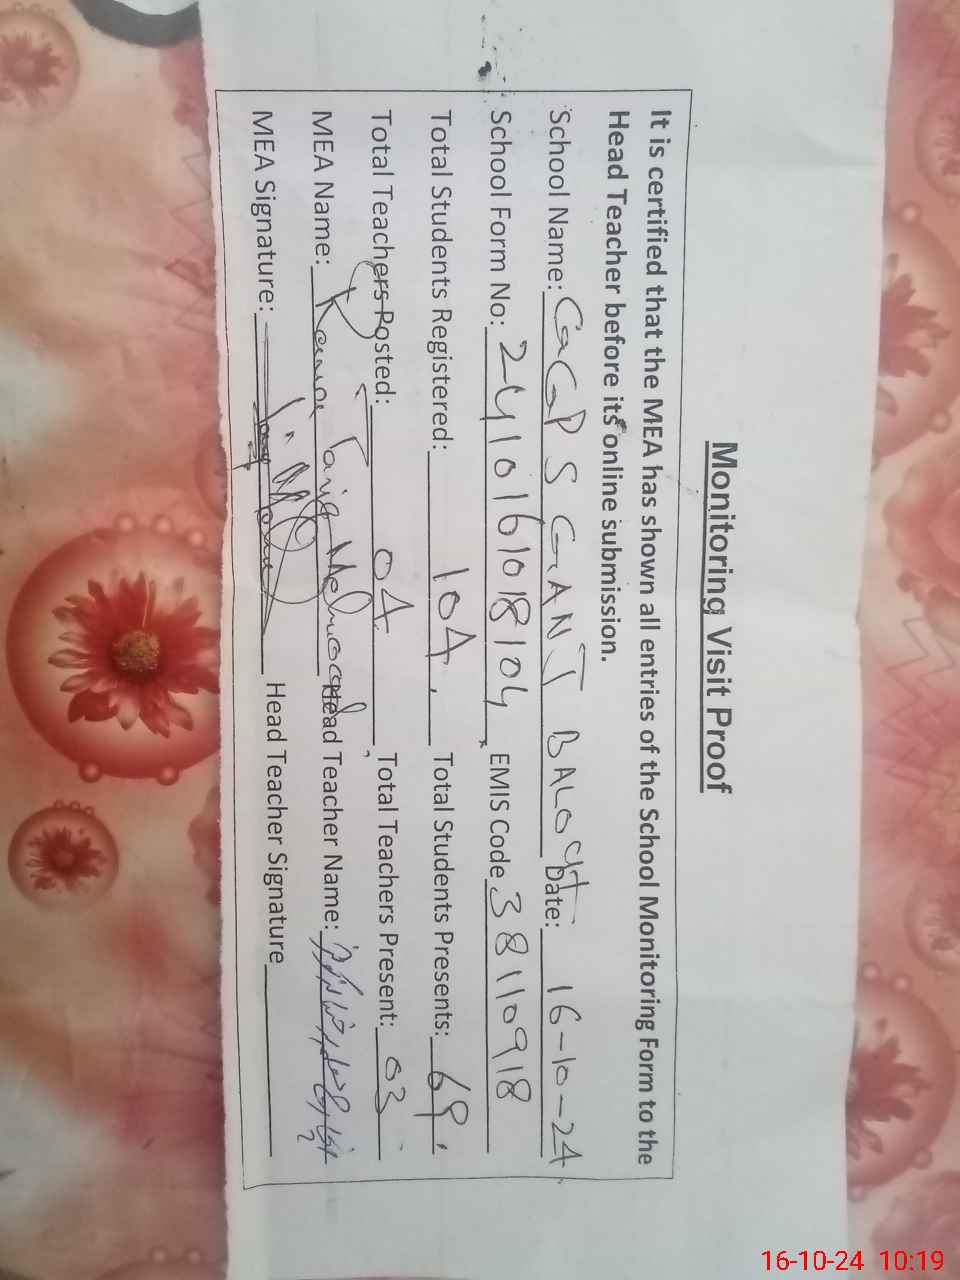 Monitoring Visit Proof
It is certified that the MEA has shown all entries of the School Monitoring Form to the
Head Teacher before its online submission.
School Name: GGPS GANJ BALOCH Date: 16-10-24
School Form No: 2410161018104 EMIS Code 38110918
Total Students Registered: 104 Total Students Presents: 69
Total Teachers Posted: 04 Total Teachers Present: 03
MEA Name: Tariq Mehmood Head Teacher Name:
MEA Signature: Head Teacher Signature
16-10-24 10:19